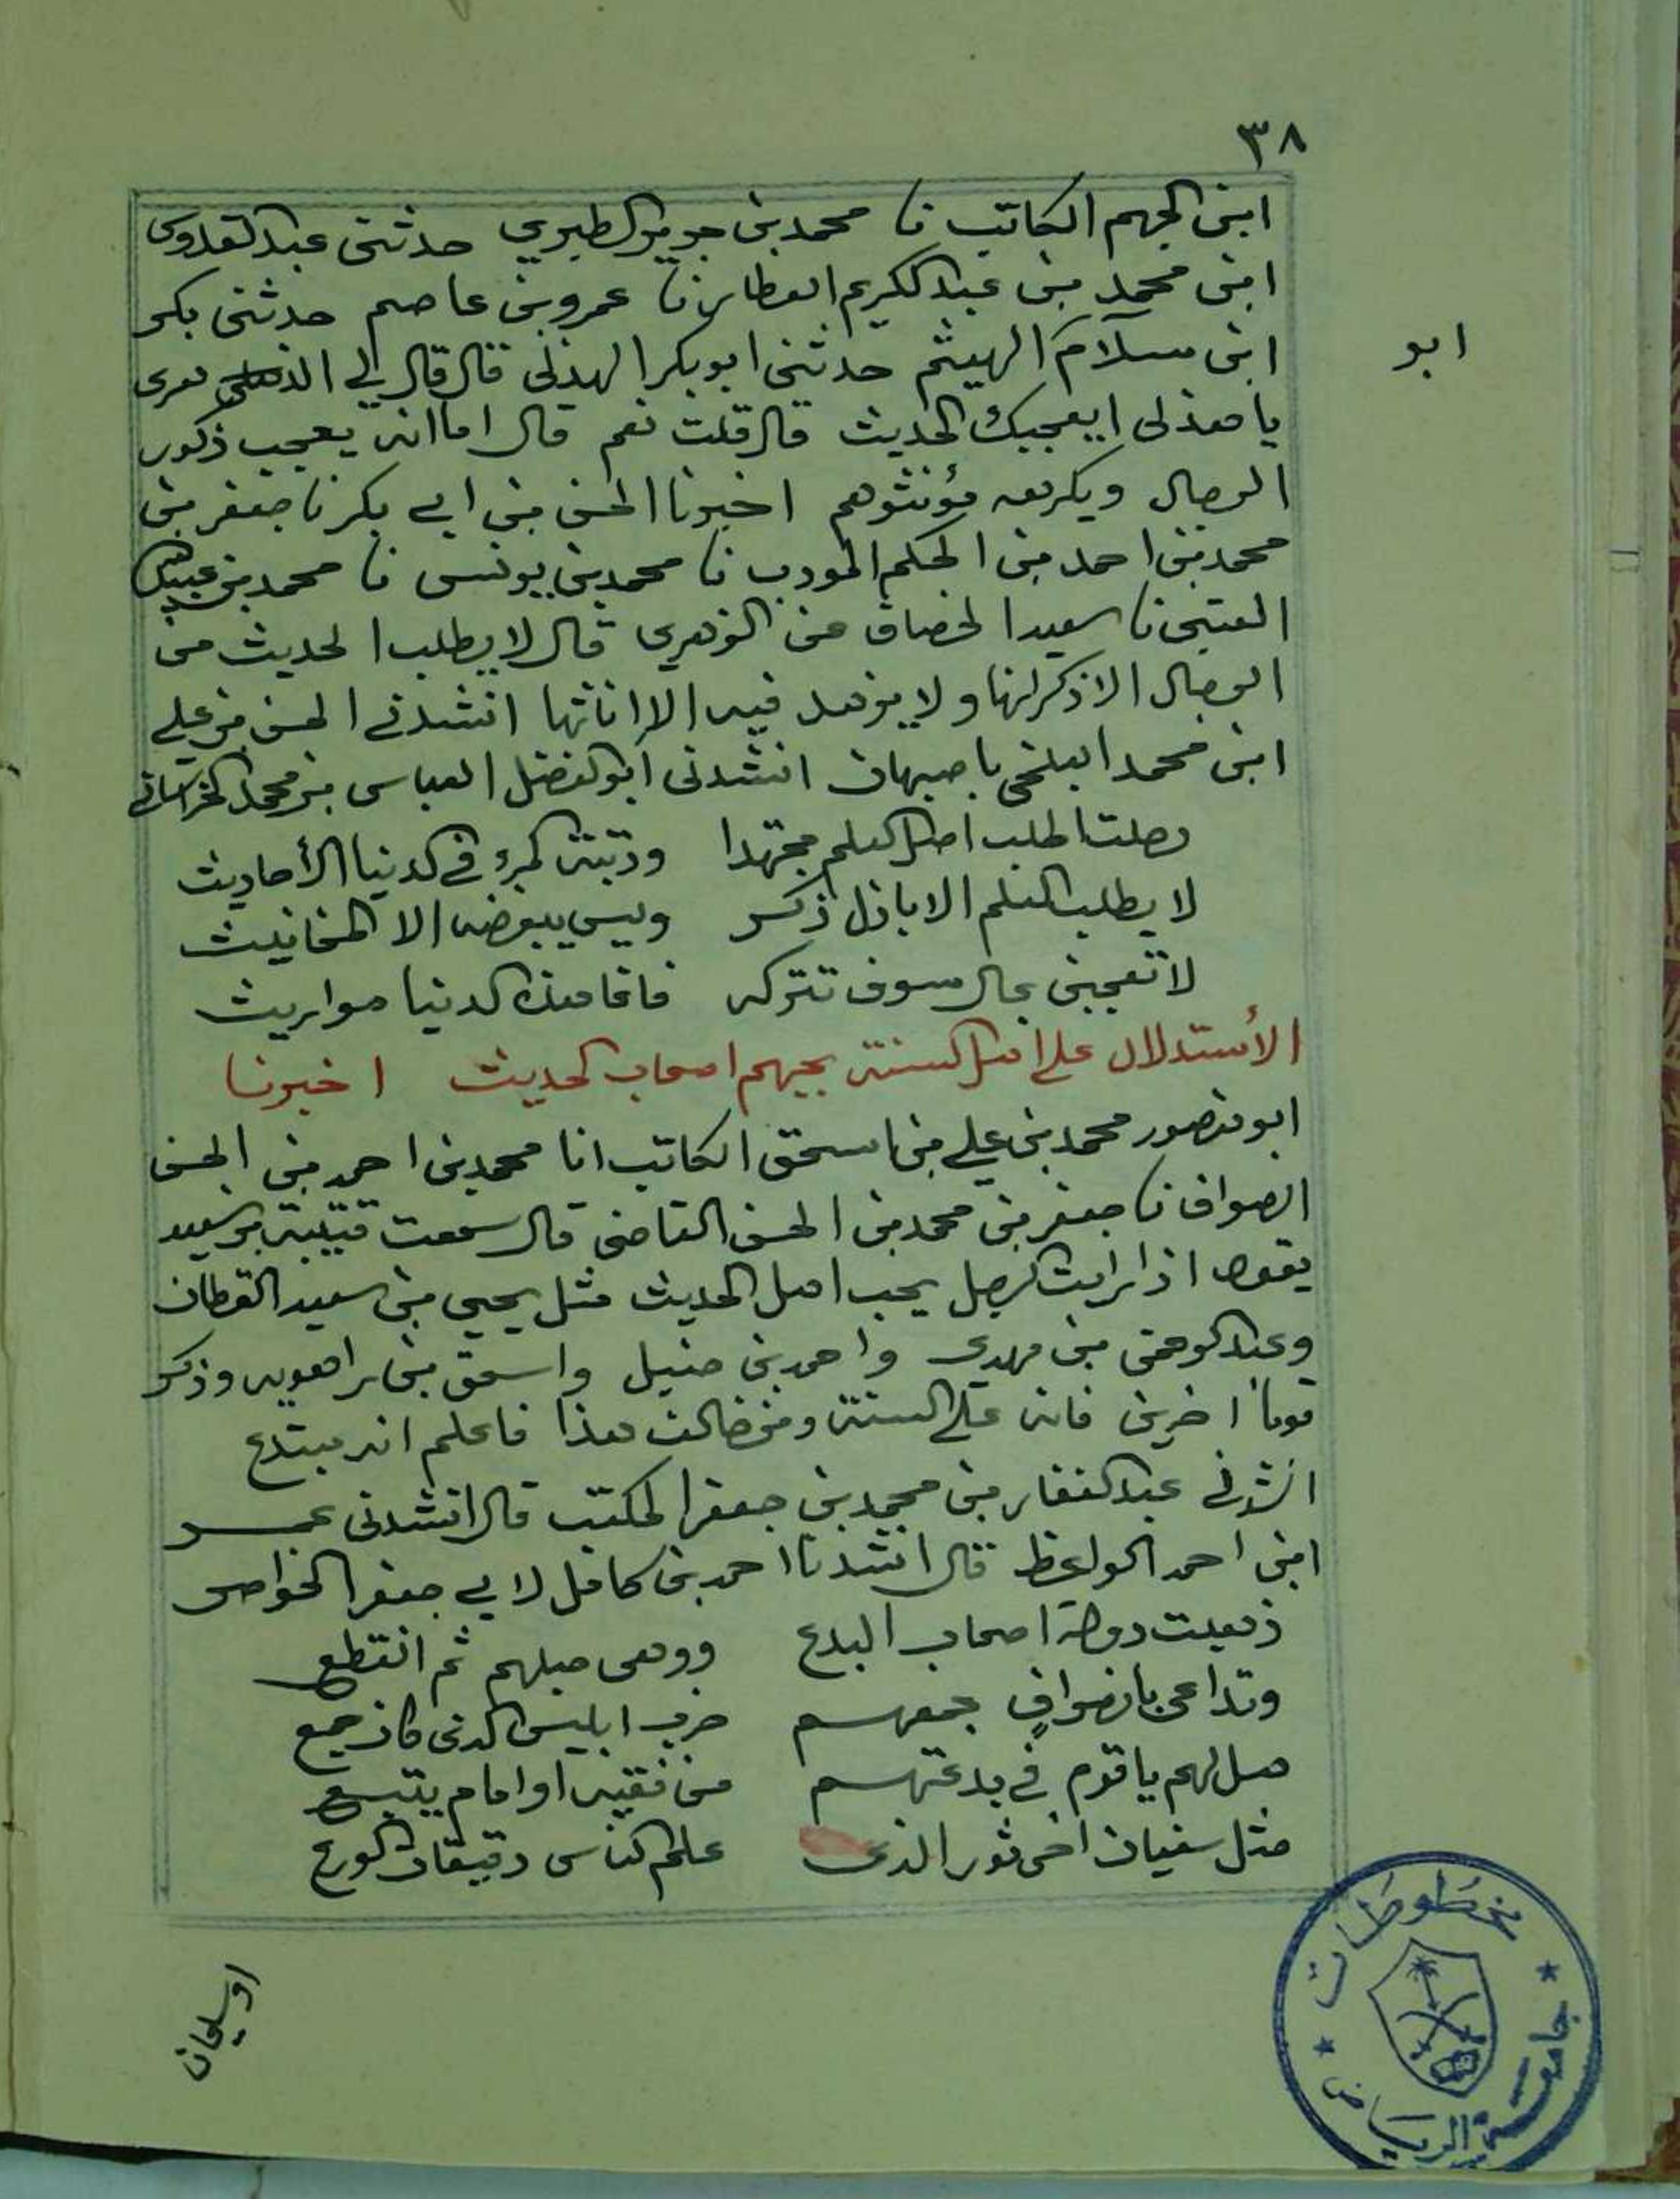 ٣٨
ابن الجهم الكاتب نا محمد بن جرير الطبري حدثني عبد القدوس
ابن محمد بن عبد الكريم العطار نا عمرو بن عاصم حدثني بكر
ابو
ابن سلام الهيثم حدثني ابو بكر الهذلي قال قال لي الزهري
يا هذلي ايعجبك الحديث قال قلت نعم قال اما انه يعجب ذكور
الرجال ويكرهه مؤنثوهم اخبرنا الحسن بن ابي بكر نا جعفر بن
محمد بن احمد بن الحكم المودب نا محمد بن يونس نا محمد بن عبيد الله
العتبى نا سعيد الخصاف عن الزهري قال لا يطلب الحديث من
الرجال الا ذكرانها ولا يزهد فيه الا اناثها انشدني الحسن بن علي
ابن محمد البلخي باصبهان انشدنى ابو الفضل العباس بن محمد الخراسانى
رحلت اطلب اصل العلم مجتهدا وزينة المرء في الدنيا الأحاديث
لا يطلب العلم الا باذل ذكر وليس يبغضه الا المخانيث
لا تعجبن بمال سوف تتركه فانما هذه الدنيا مواريث
الأستدلال على اهل السنة بحبهم اصحاب الحديث اخبرنا
ابو منصور محمد بن علي بن اسحق الكاتب انا محمد بن احمد بن الحسن
الصواف نا جعفر بن محمد بن الحسن القاضي قال سمعت قتيبة بن سعيد
يقول اذا رايت الرجل يحب اهل الحديث مثل يحيى بن سعيد القطان
وعبد الرحمن بن مهدى واحمد بن حنبل واسحق بن راهويه وذكر
قوماً اخرين فانه على السنة ومن خالف هذا فاعلم انه مبتدع
انشدني عبد الغفار بن محمد بن جعفر المكتب قال انشدنى عمر
ابن احمد الواعظ قال انشدنا احمد بن كامل لابي جعفر الخواص
ذهبت دولة اصحاب البدع ووهى حبلهم ثم انقطع
وتداعى بانصرافٍ جمعهم حزب ابليس الذى كان جمع
هل لهم يا قوم في بدعتهم من فقيه او امام يتبع
مثل سفيان اخى ثور الذى علم الناس دقيقات الورع
او سليمان
مخطوطات
جامعة الرياض